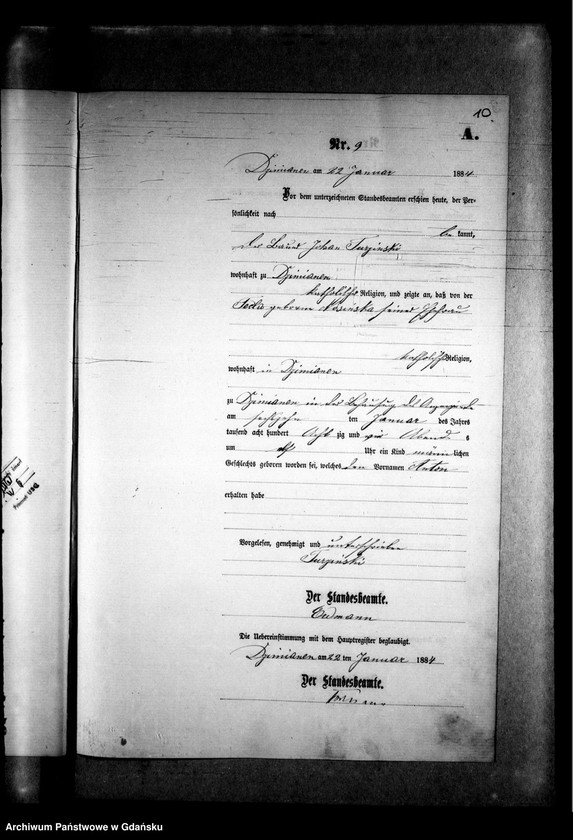 10.
A.
Nr. 9
Dzimianen am 22 Januar 1884
Vor dem unterzeichneten Standesbeamten erschien heute, der Per-
sönlichkeit nach
be kannt,
der Bauer Johan Turzinski
wohnhaft zu Dzimianen
katholischer Religion, und zeigte an, daß von der
geborene seiner Ehefrau
katholischer Religion,
wohnhaft in Dzimianen
zu Dzimianen in der Behausung des
am sechszehn ten Januar des Jahres
tausend acht hundert Acht zig und vier Abend s
um elf Uhr ein Kind männ lichen
Geschlechts geboren worden sei, welches den Vornamen Anton
erhalten habe
Vorgelesen, genehmigt und unterschrieben
Turzinski
Der Standesbeamte.
Die Uebereinstimmung mit dem Hauptregister beglaubigt.
Dzimianen am 22 ten Januar 1884
Der Standesbeamte.
Archiwum Państwowe w Gdańsku